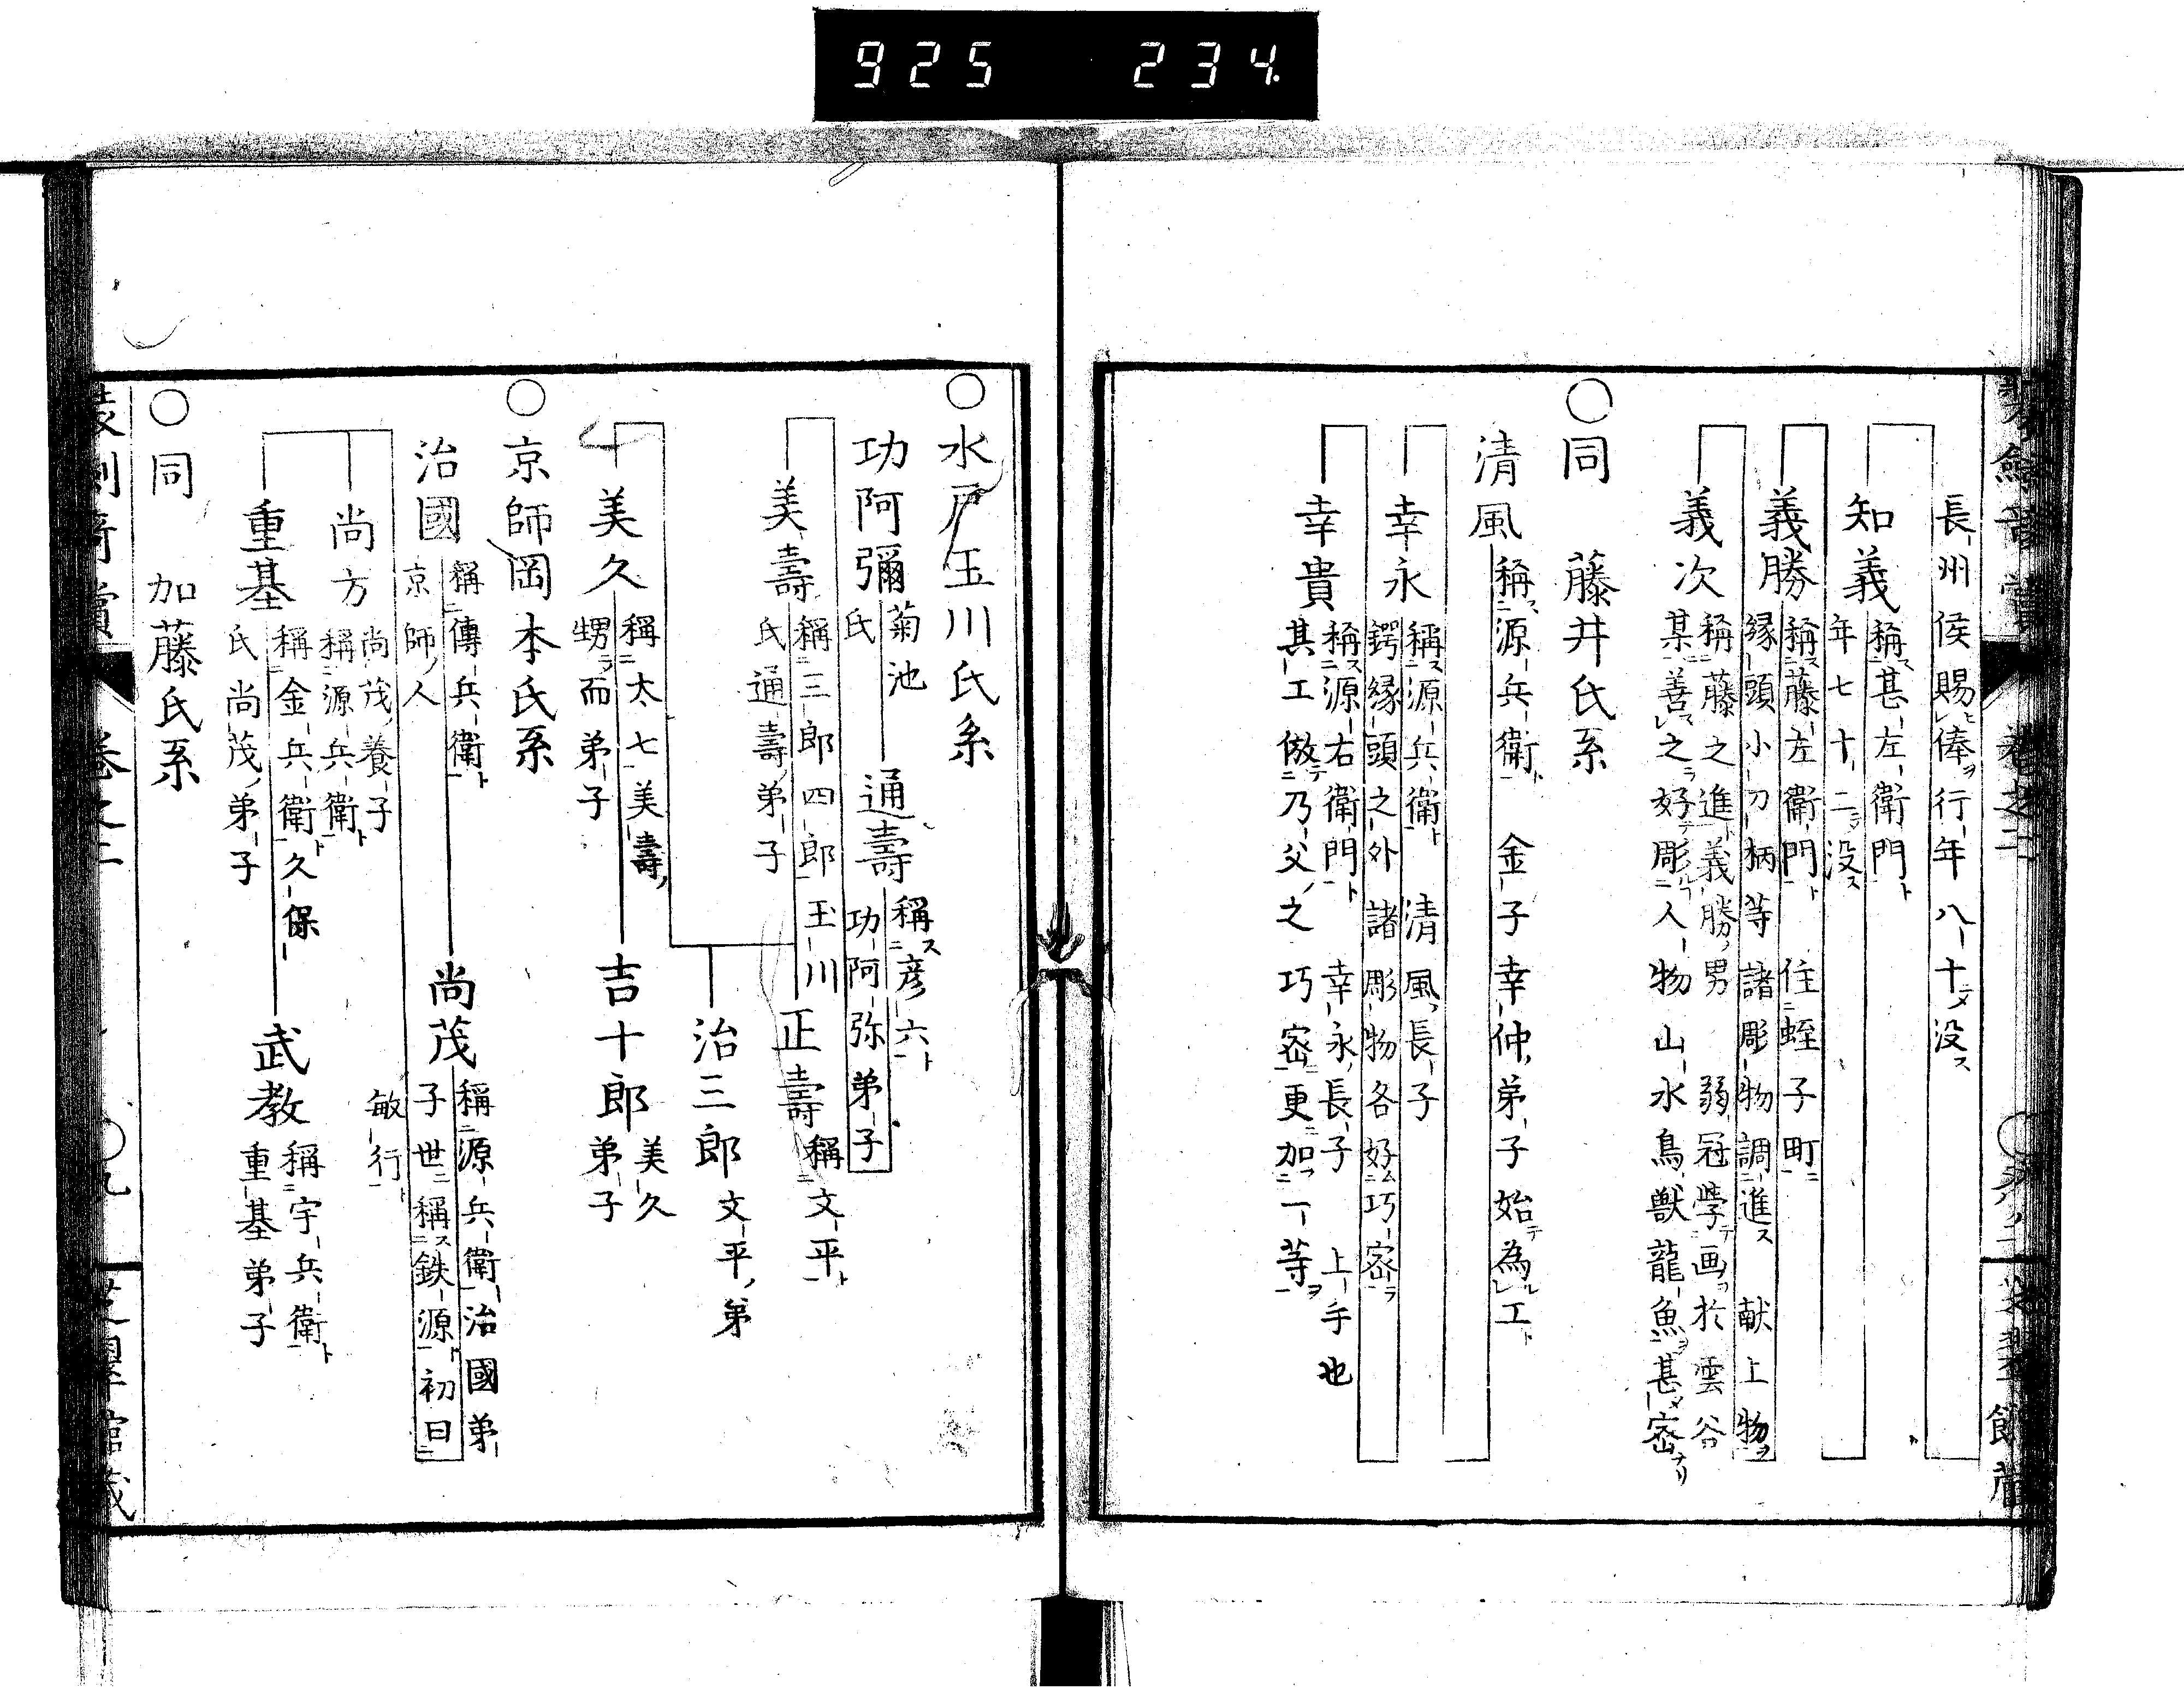 925 234
長州侯賜俸ヲ行年八十ニメ没ス
知義
稱ス甚左衛門ト
年七十二ニテ没ス
義勝
稱ス藤左衛門ト 住蛭子町ニ
縁頭小刀柄等諸彫物調進ス 献上物ヲ
義次
稱藤之進ト義勝ノ男 弱冠學テ画ヲ於雲谷
某ニ善ス之ヲ好テ彫ル人物山水鳥獣龍魚ヲ甚密ナリ
○同 藤井氏系
清風
稱ス源兵衛ト 金子幸仲ノ弟子始テ為ル工ト
幸永
稱ス源兵衛ト 清風ノ長子
鍔縁頭之外諸彫物各好ム巧密ヲ
幸貴
稱ス源右衛門ト 幸永ノ長子 上手也
其工倣テ乃父ノ之巧密ニ更ニ加フ一等ヲ
○水戸玉川氏系
功阿彌
菊池
氏
通壽
稱ス彦六ト
功阿弥弟子
美壽
稱三郎四郎玉川
氏通壽ノ弟子
正壽
稱文平ト
治三郎
文平ノ弟
美久
稱太七美壽ノ
甥ニテ而弟子
吉十郎
美久
弟子
○京師岡本氏系
治國
稱傳兵衛ト
京師ノ人
尚茂
稱源兵衛ト治國弟
子世ニ稱ス鉄源ト初曰
敏行ト
尚方
尚茂ノ養子
稱源兵衛ト
重基
稱金兵衛ト久保
氏尚茂ノ弟子
武教
稱宇兵衛ト
重基弟子
○同 加藤氏系
卷之二
○九